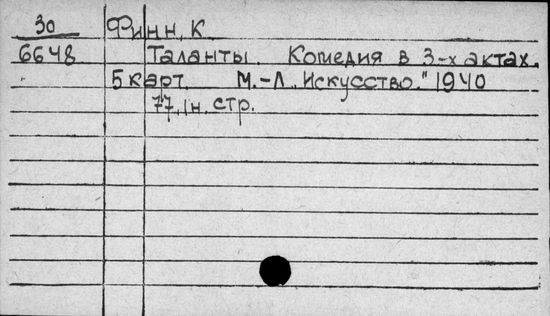 30 Финн, К
6648 Таланты. Комедия в 3-х актах.
5 карт. М.-Л „Искусство." 1940
77, 1н. стр.